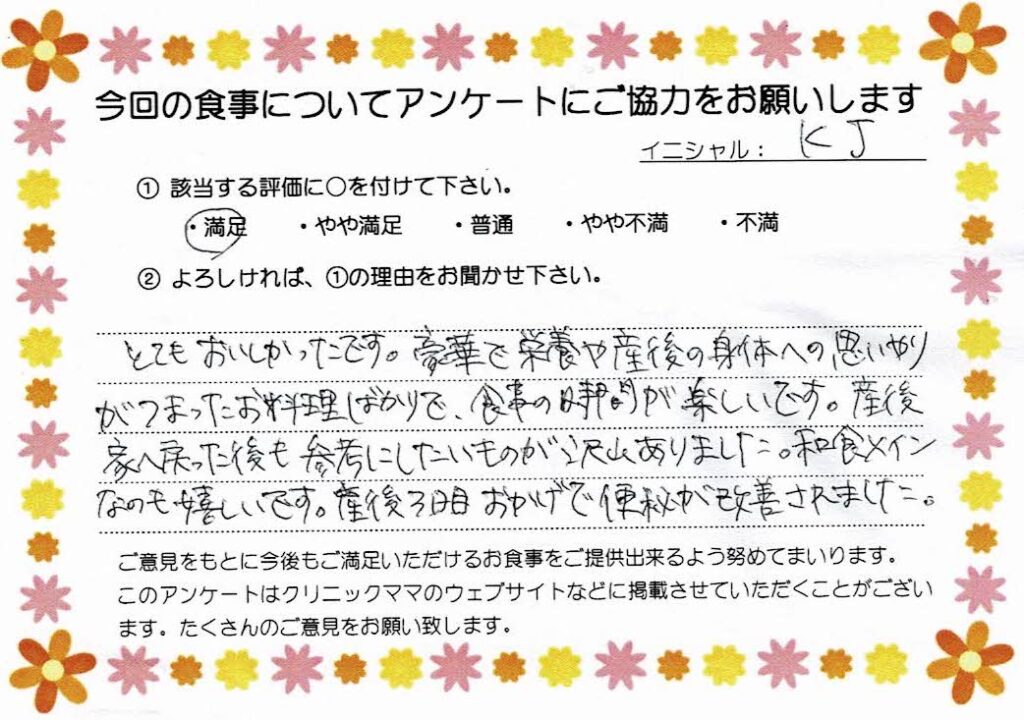 今回の食事についてアンケートにご協力をお願いします
イニシャル： KJ
① 該当する評価に○を付けて下さい。
・満足 ・やや満足 ・普通 ・やや不満 ・不満
② よろしければ、①の理由をお聞かせ下さい。
とてもおいしかったです。豪華で栄養や産後の身体への思いやり
がつまったお料理ばかりで、食事の時間が楽しいです。産後
家へ戻った後も参考にしたいものが沢山ありました。和食メイン
なのも嬉しいです。産後3日目おかげで便秘が改善されました。
ご意見をもとに今後もご満足いただけるお食事をご提供出来るよう努めてまいります。
このアンケートはクリニックママのウェブサイトなどに掲載させていただくことがござい
ます。たくさんのご意見をお願い致します。